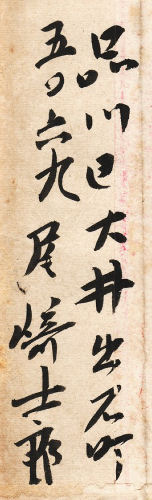 品川区大井出石町
五〇六九
尾崎士郎